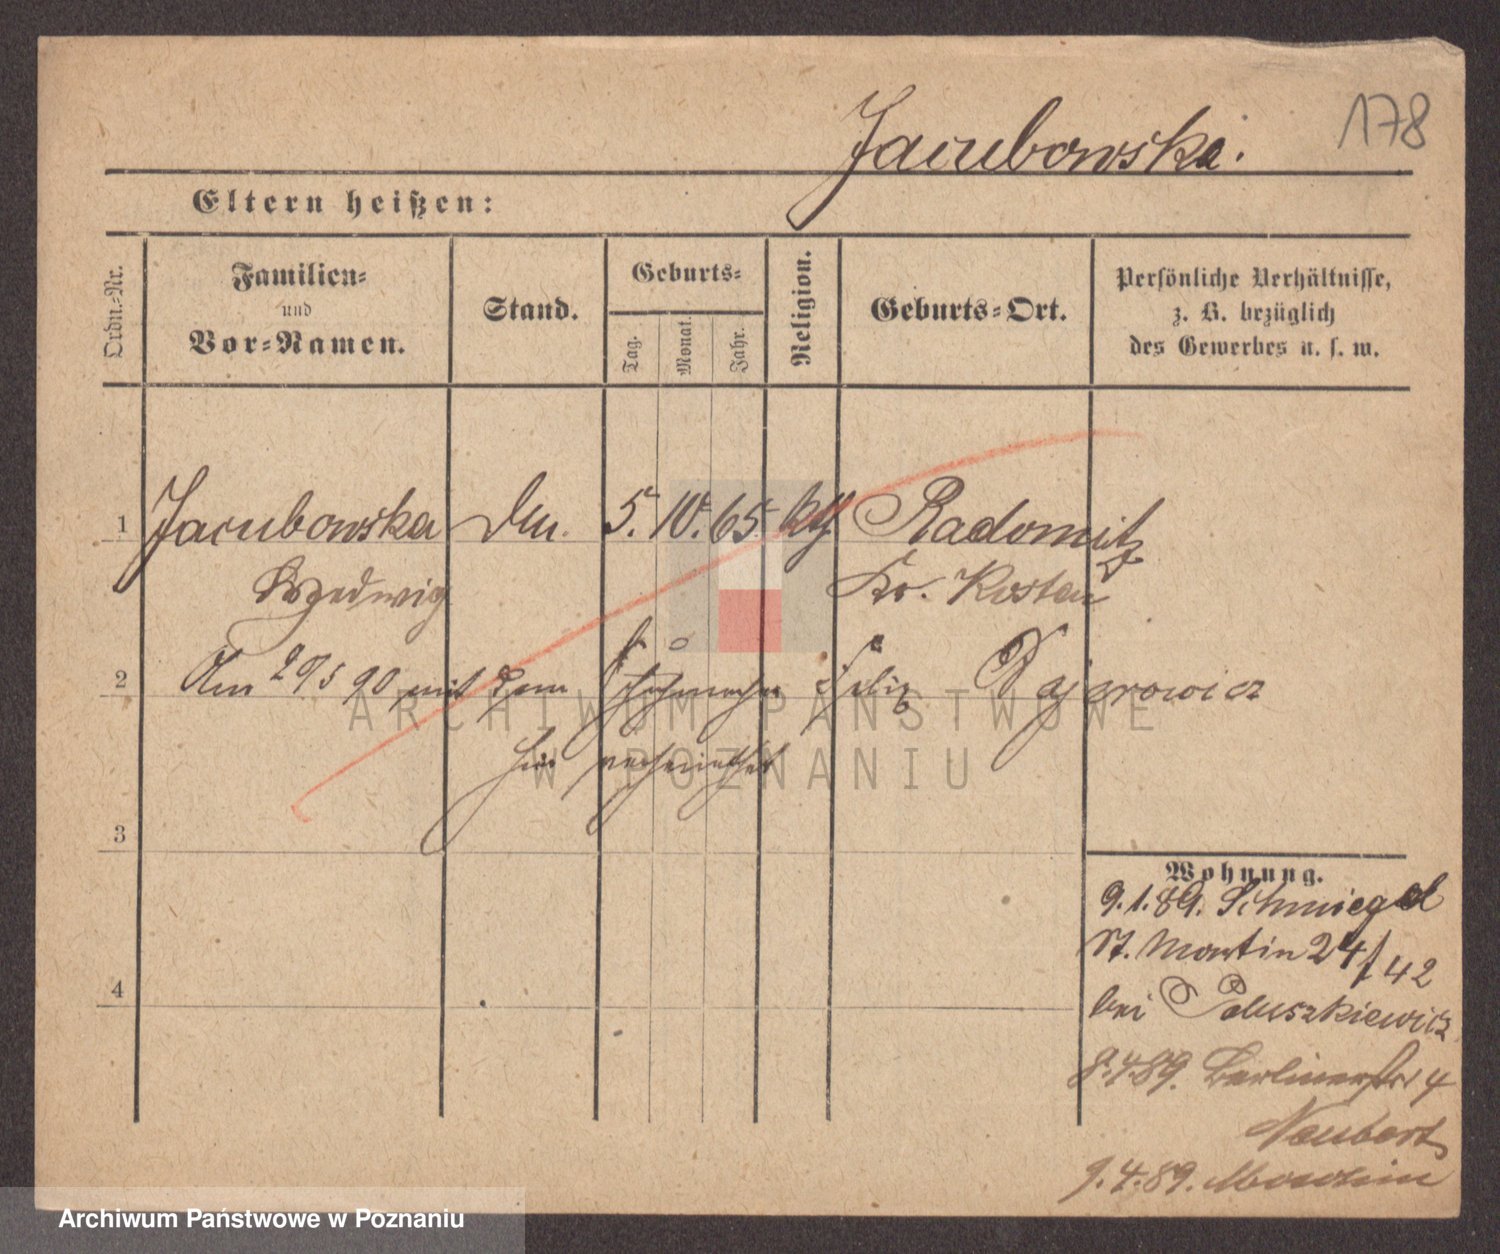 178
Jacubowska.
Eltern heißen:
Ordn.-Nr.
Familien-
und
Vor-Namen.
Stand.
Geburts-
Tag.
Monat.
Jahr.
Religion.
Geburts-Ort.
Persönliche Verhältnisse,
z. B. bezüglich
des Gewerbes u. s. w.
1 Jacubowska 5. 10. 65. kth Radomitz
Hedwig Kr. Kosten
2 Am 29/5 90 mit dem Schuhmacher Felix
hier verheirathet
3
4
Wohnung.
9.1.89. Schmiegel
St. Martin 24/42
bei Paluszkiewicz
8.4.89. Berlinerstr 4
Neubert
9.4.89.
ARCHIWUM PAŃSTWOWE
W POZNANIU
Archiwum Państwowe w Poznaniu